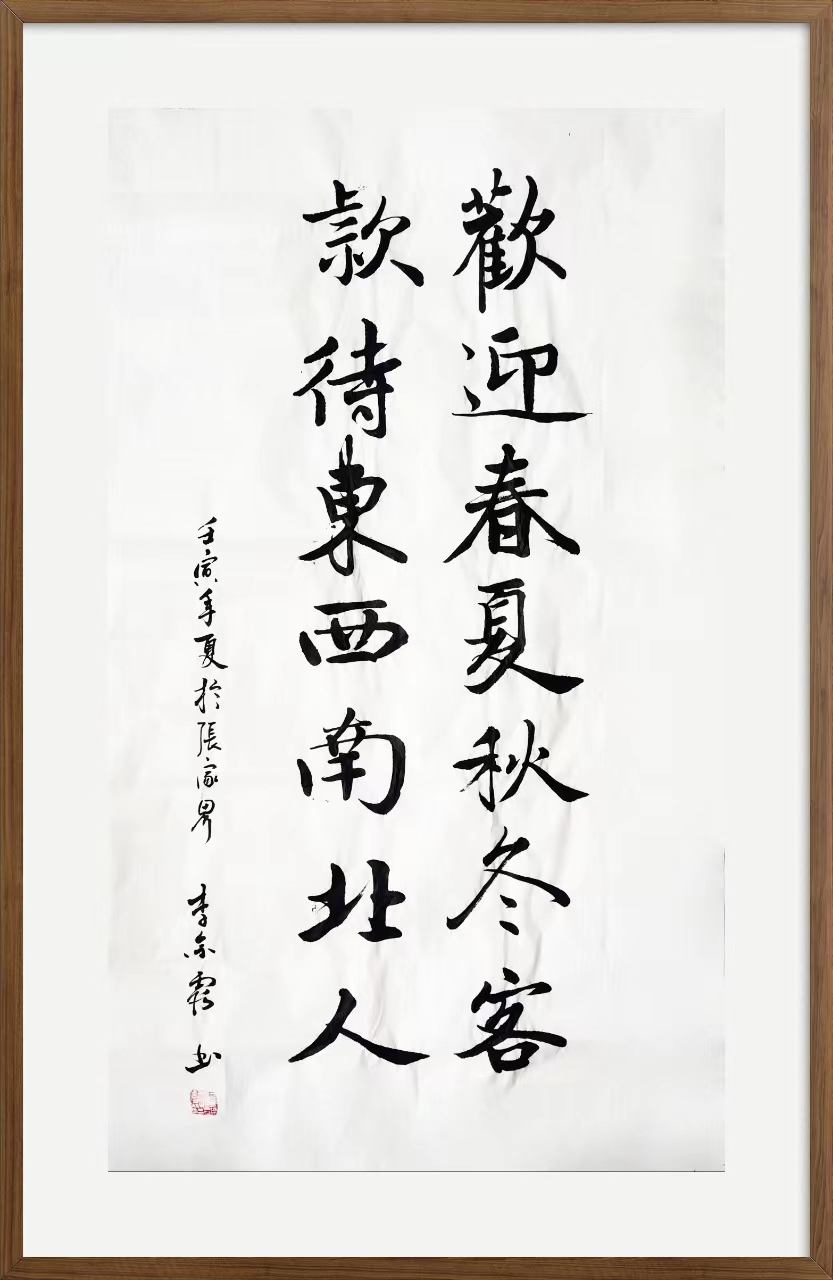 歡迎春夏秋冬客
款待東西南北人
壬寅年夏於張家界 李亦霞 书